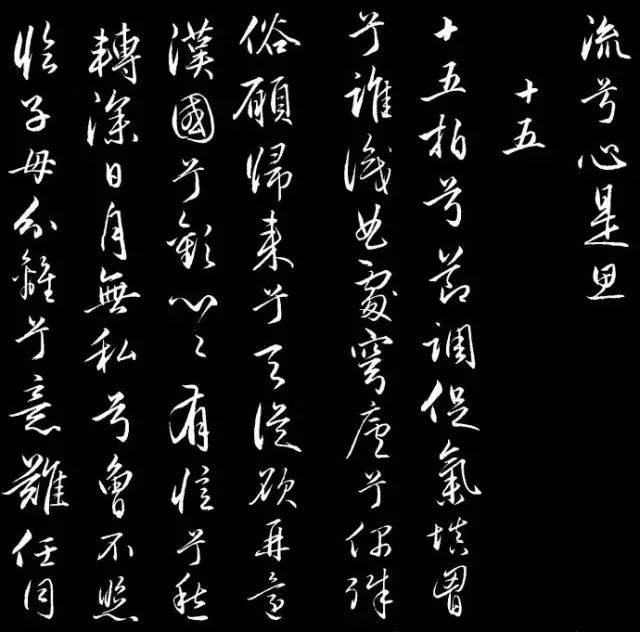 流兮心是思
十五
十五拍兮節調促氣填胷
兮誰識曲處穹廬兮偶殊
俗願歸來兮天從欲再還
漢國兮歡心々有憶兮愁
轉深日月無私兮曾不照
臨子母分離兮意難任同